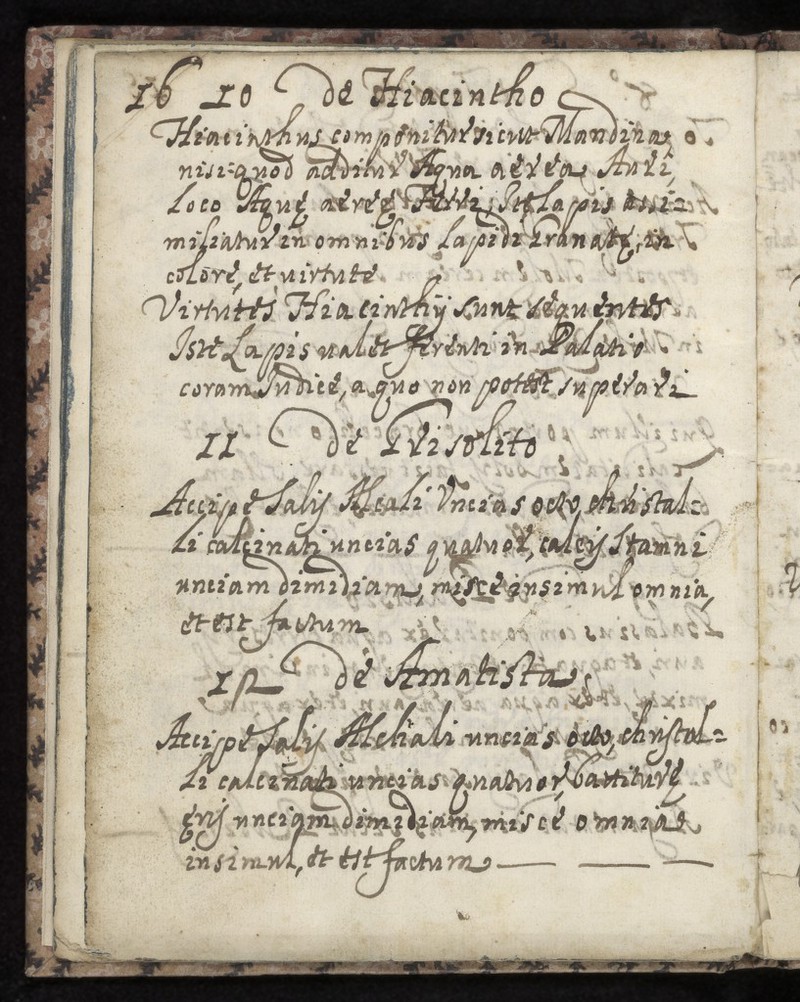 16 10 de Hiacintho
Hiacinthus componitur sicut Mandina,
nisi quod additur Aqua aerea Auri,
loco Aquę aereę Ferri, Iste Lapis assi=
miliatur in omnibus Lapidi Granatę, in
colore, et uirtute
Virtutes Hiacinthij sunt sequentes
Iste Lapis ualet ferenti in Palatio
coram Iudice, a quo non potest superari
11 de Grisolito
Accipe Salij Alcali Vncias octo, christal=
li calcinati uncias quatuor, calcij Stamni
unciam dimidiam, misce insimul omnia,
et est factum
12 de Amatista
Accipe Salij Alchali uncias octo, christal=
li calcinati uncias quatuor, battiturę
ęrij unciam dimidiam, misce omnia
insimul, et est factum